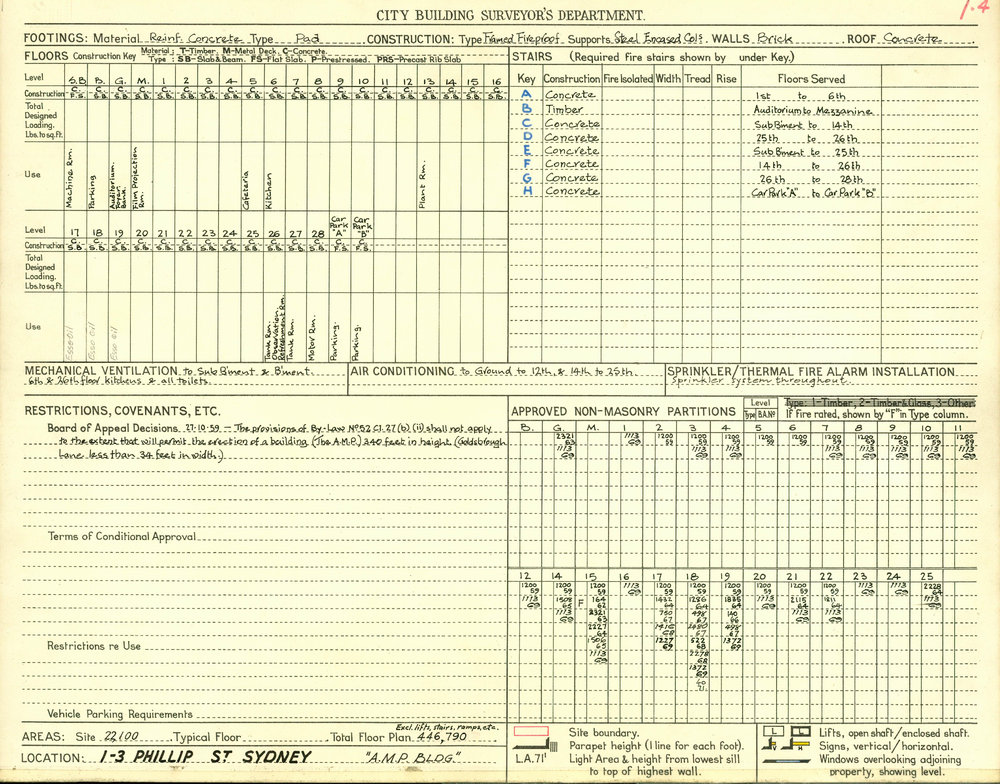 1.4
CITY BUILDING SURVEYOR'S DEPARTMENT.
FOOTINGS: Material Reinf. Concrete Type Pad CONSTRUCTION: Type Framed Fireproof Supports Steel Encased Cols. WALLS Brick ROOF Concrete
FLOORS Construction Key Material: T-Timber. M-Metal Deck. C-Concrete.
Type: SB-Slab&Beam. FS-Flat Slab. P-Prestressed. PRS-Precast Rib Slab
Level S.B B. G. M. 1 2 3 4 5 6 7 8 9 10 11 12 13 14 15 16
Construction C. F.S. C. S.B. C. S.B. C. S.B. C. S.B. C. S.B. C. S.B. C. S.B. C. S.B. C. S.B. C. S.B. C. S.B. C. S.B. C. S.B. C. S.B. C. S.B. C. S.B. C. S.B. C. S.B.
Total
Designed
Loading.
Lbs.to sq.ft.
Use
Machine Rm.
Parking
Auditorium
Foyer
Bank.
Film Projection
Rm.
Cafeteria
Kitchen
Plant Rm.
Level 17 18 19 20 21 22 23 24 25 26 27 28 Car Park "A" Car Park "B"
Construction C. S.B. C. S.B. C. S.B. C. S.B. C. S.B. C. S.B. C. S.B. C. S.B. C. S.B. C. S.B. C. S.B. C. S.B. C. F.S. C. F.S.
Total
Designed
Loading.
Lbs.to sq.ft.
Use
Esso oil
Esso oil
Esso oil
Tank Rm.
Observation
Refreshment Rm.
Tank Rm.
Motor Rm.
Parking.
Parking.
STAIRS (Required fire stairs shown by under Key.)
Key Construction Fire Isolated Width Tread Rise Floors Served
A Concrete 1st to 6th
B Timber Auditorium to Mezzanine
C Concrete Sub B'ment to 14th
D Concrete 25th to 26th
E Concrete Sub B'ment to 25th
F Concrete 14th to 26th
G Concrete 26th to 28th
H Concrete Car Park "A" to Car Park "B"
MECHANICAL VENTILATION to Sub B'ment & B'ment.
6th & 26th floor kitchens & all toilets.
AIR CONDITIONING to Ground to 12th, & 14th to 25th.
SPRINKLER/THERMAL FIRE ALARM INSTALLATION
Sprinkler system throughout.
RESTRICTIONS, COVENANTS, ETC.
Board of Appeal Decisions. 27.10.59 - The provisions of By-Law No 52 Cl.27 (b) (ii) shall not apply
to the extent that will permit the erection of a building (The A.M.P.) 240 feet in height. (Goldsbrough
Lane less than 34 feet in width.)
Terms of Conditional Approval
Restrictions re Use
Vehicle Parking Requirements
APPROVED NON-MASONRY PARTITIONS
Level
Type B.A.No
Type: 1-Timber, 2-Timber & Glass, 3-Other.
If fire rated, shown by "F" in Type column.
B. G. M. 1 2 3 4 5 6 7 8 9 10 11
2321 63 1113 69
1113 69
1200 59
1200 59 1113 69
1200 59 1113 69
1200 59
1200 59
1200 59 1113 69
1200 59 1113 69
1200 59 1113 69
1200 59 1113 69
1200 59 1113 69
12 14 15 16 17 18 19 20 21 22 23 24 25
1200 59 1113 69
1200 59 1508 65 1113 69
F
1200 59 164 62 2321 63 2227 64 1506 65 1113 69
1113 69
1200 59 1432 64 750 67 1416 68 1227 69
1200 59 1286 64 498 67 2480 67 522 68 2278 68 1372 69
1200 59 1835 64 140 66 498 67 1372 69
1113 69
1200 59 2115 64 1113 69
1200 59 1811 64 1113 69
1113 69
1113 69
2228 64 1113 69
AREAS: Site 22,100 Typical Floor Total Floor Plan. 446,790
Excl. lifts, stairs, ramps, etc.
LOCATION: 1-3 PHILLIP ST SYDNEY "A.M.P. BLDG."
Site boundary.
Parapet height (1 line for each foot).
L.A.71' Light Area & height from lowest sill
to top of highest wall.
L L Lifts, open shaft/enclosed shaft.
V H Signs, vertical/horizontal.
Windows overlooking adjoining
property, showing level.